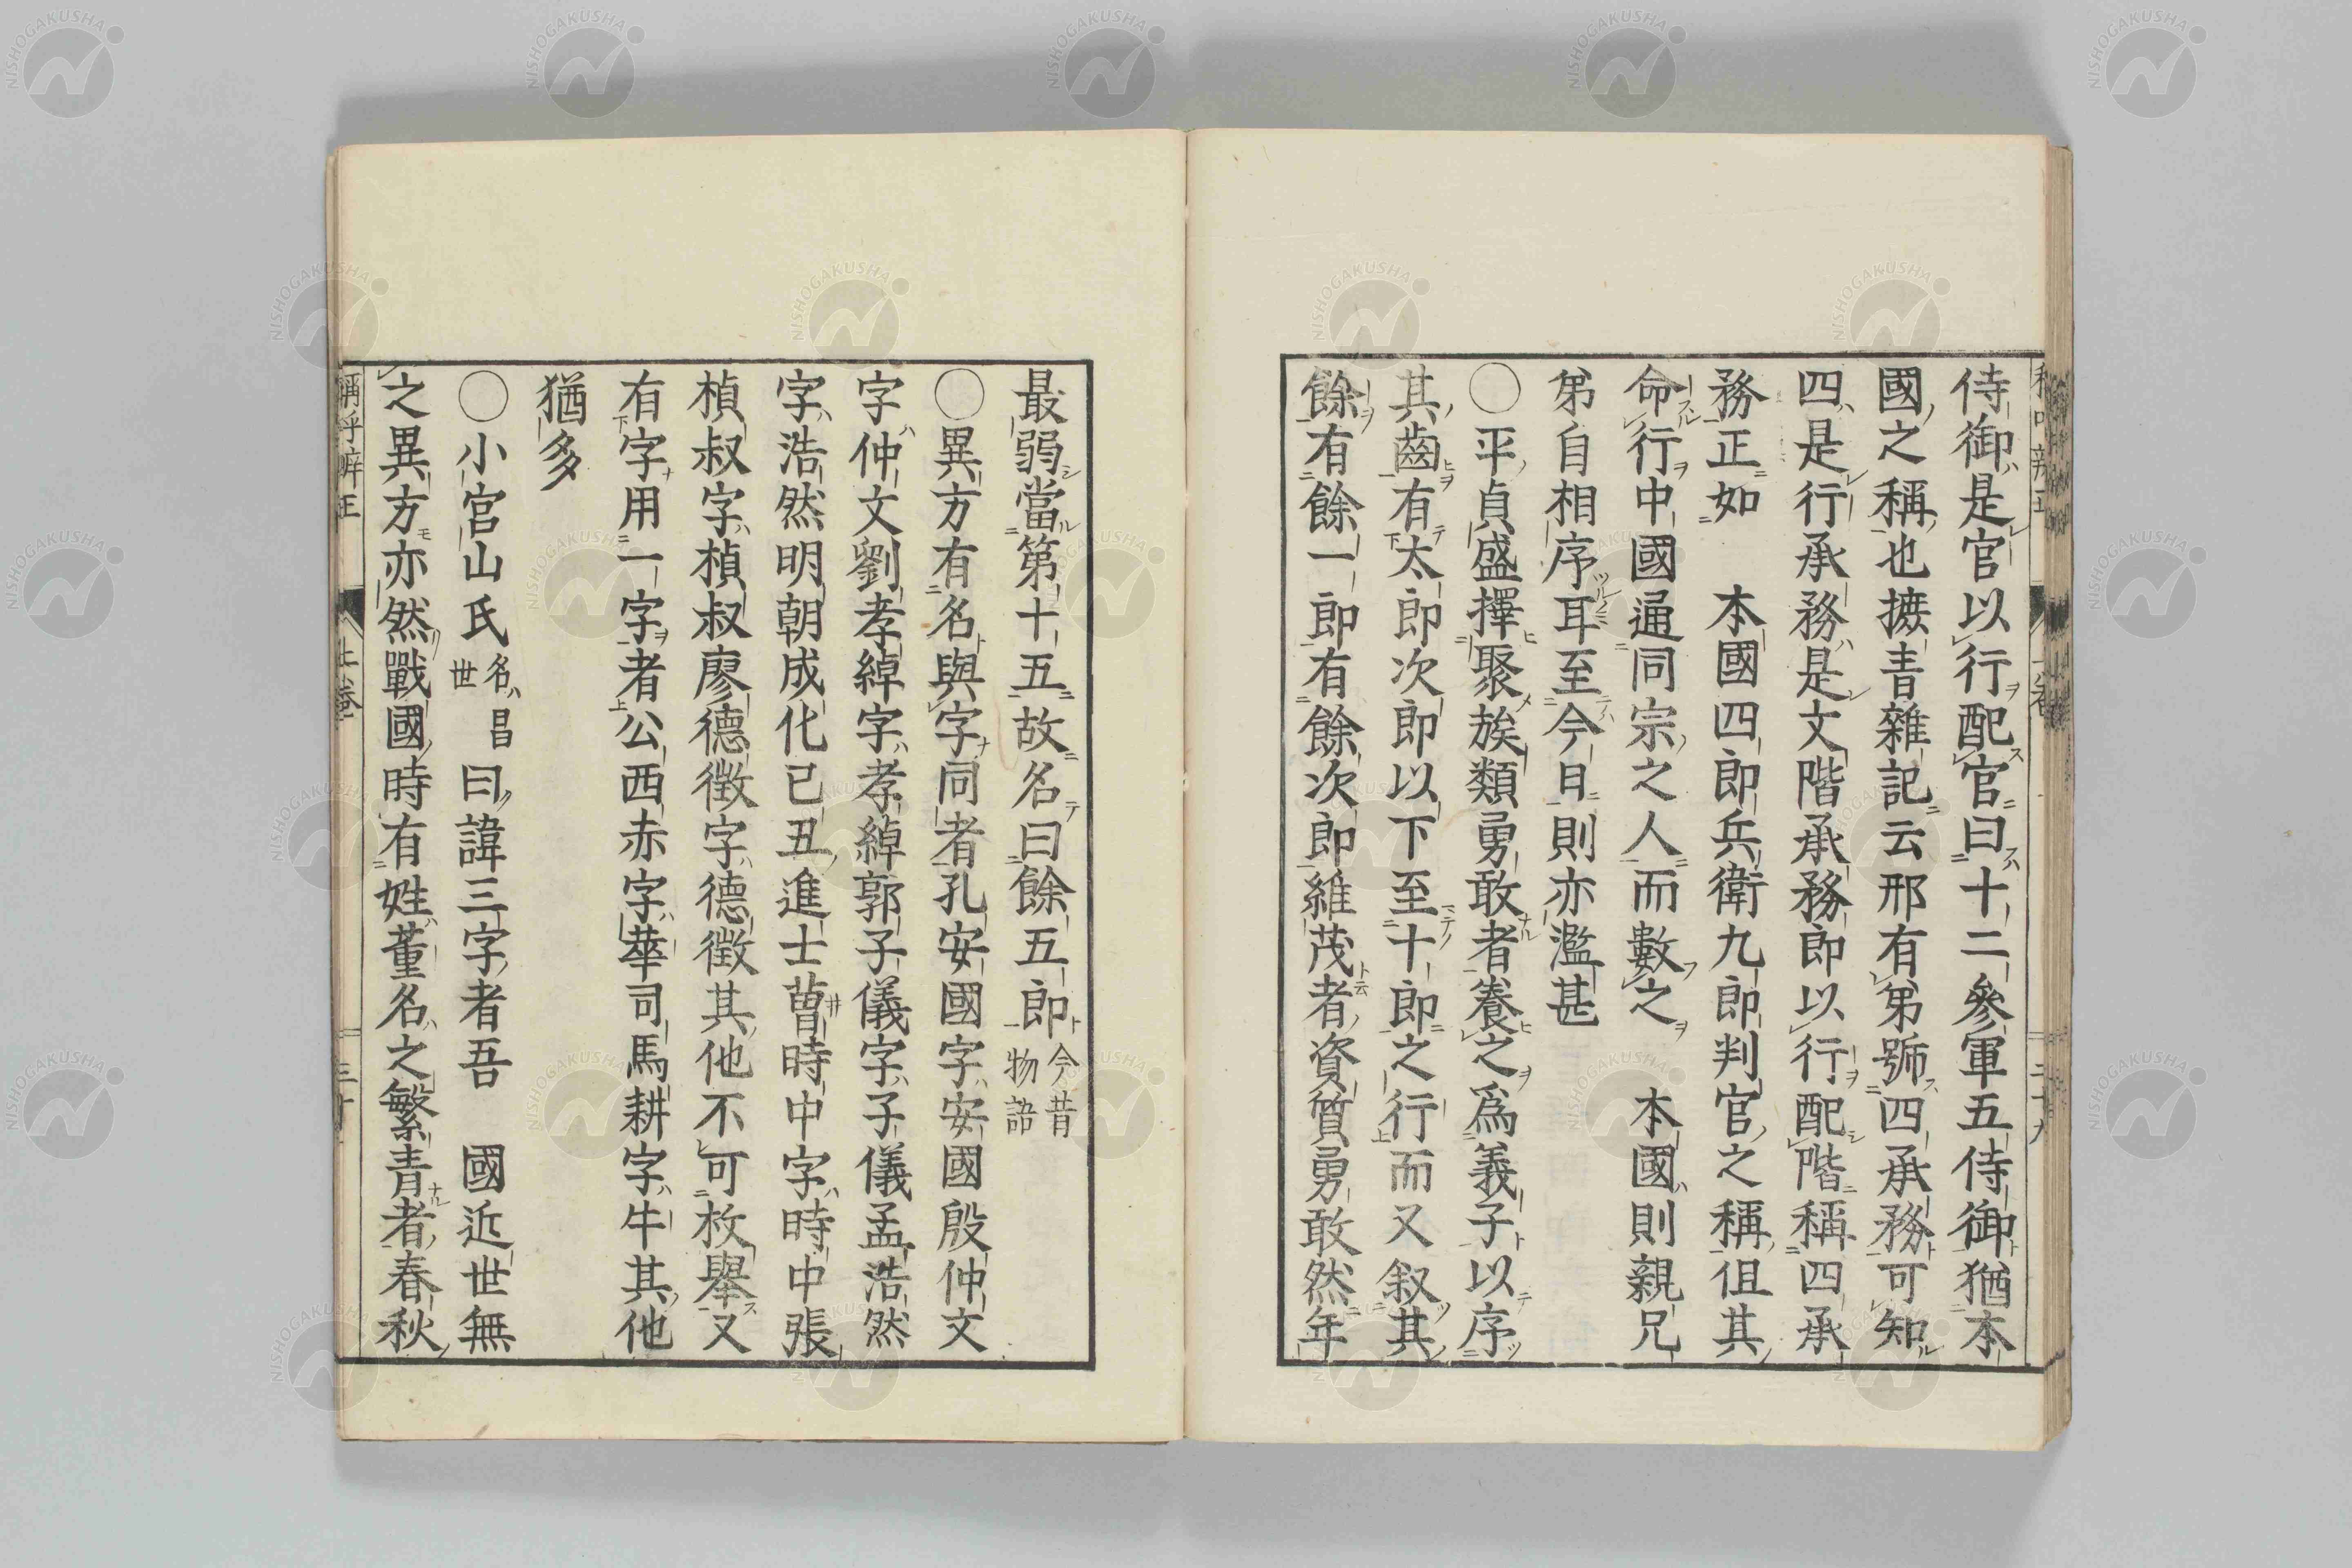 侍御是官以行配官曰十二參軍五侍御猶本
國之稱也摭青雜記云邢有弟號四承務可知
四是行承務是文階承務即以行配階稱四承
務正如　本國四郎兵衛九郎判官之稱但其
命行中國通同宗之人而數之　本國則親兄
弟自相序耳至今日則亦濫甚
○平貞盛擇聚族類勇敢者養之爲義子以序
其齒有太郎次郎以下至十郎之行而又叙其
餘有餘一郎有餘次郎維茂者資質勇敢然年
最弱當第十五故名曰餘五郎今昔物語
○異方有名與字同者孔安國字安國殷仲文
字仲文劉孝綽字孝綽郭子儀字子儀孟浩然
字浩然明朝成化己丑進士曹時中字時中張
楨叔字楨叔廖德徵字德徵其他不可枚舉又
有字用一字者公西赤字華司馬耕字牛其他
猶多
○小宮山氏名昌世曰諱三字者吾　國近世無
之異方亦然戰國時有姓董名之繁菁者春秋
稱呼辨正　上卷　三十